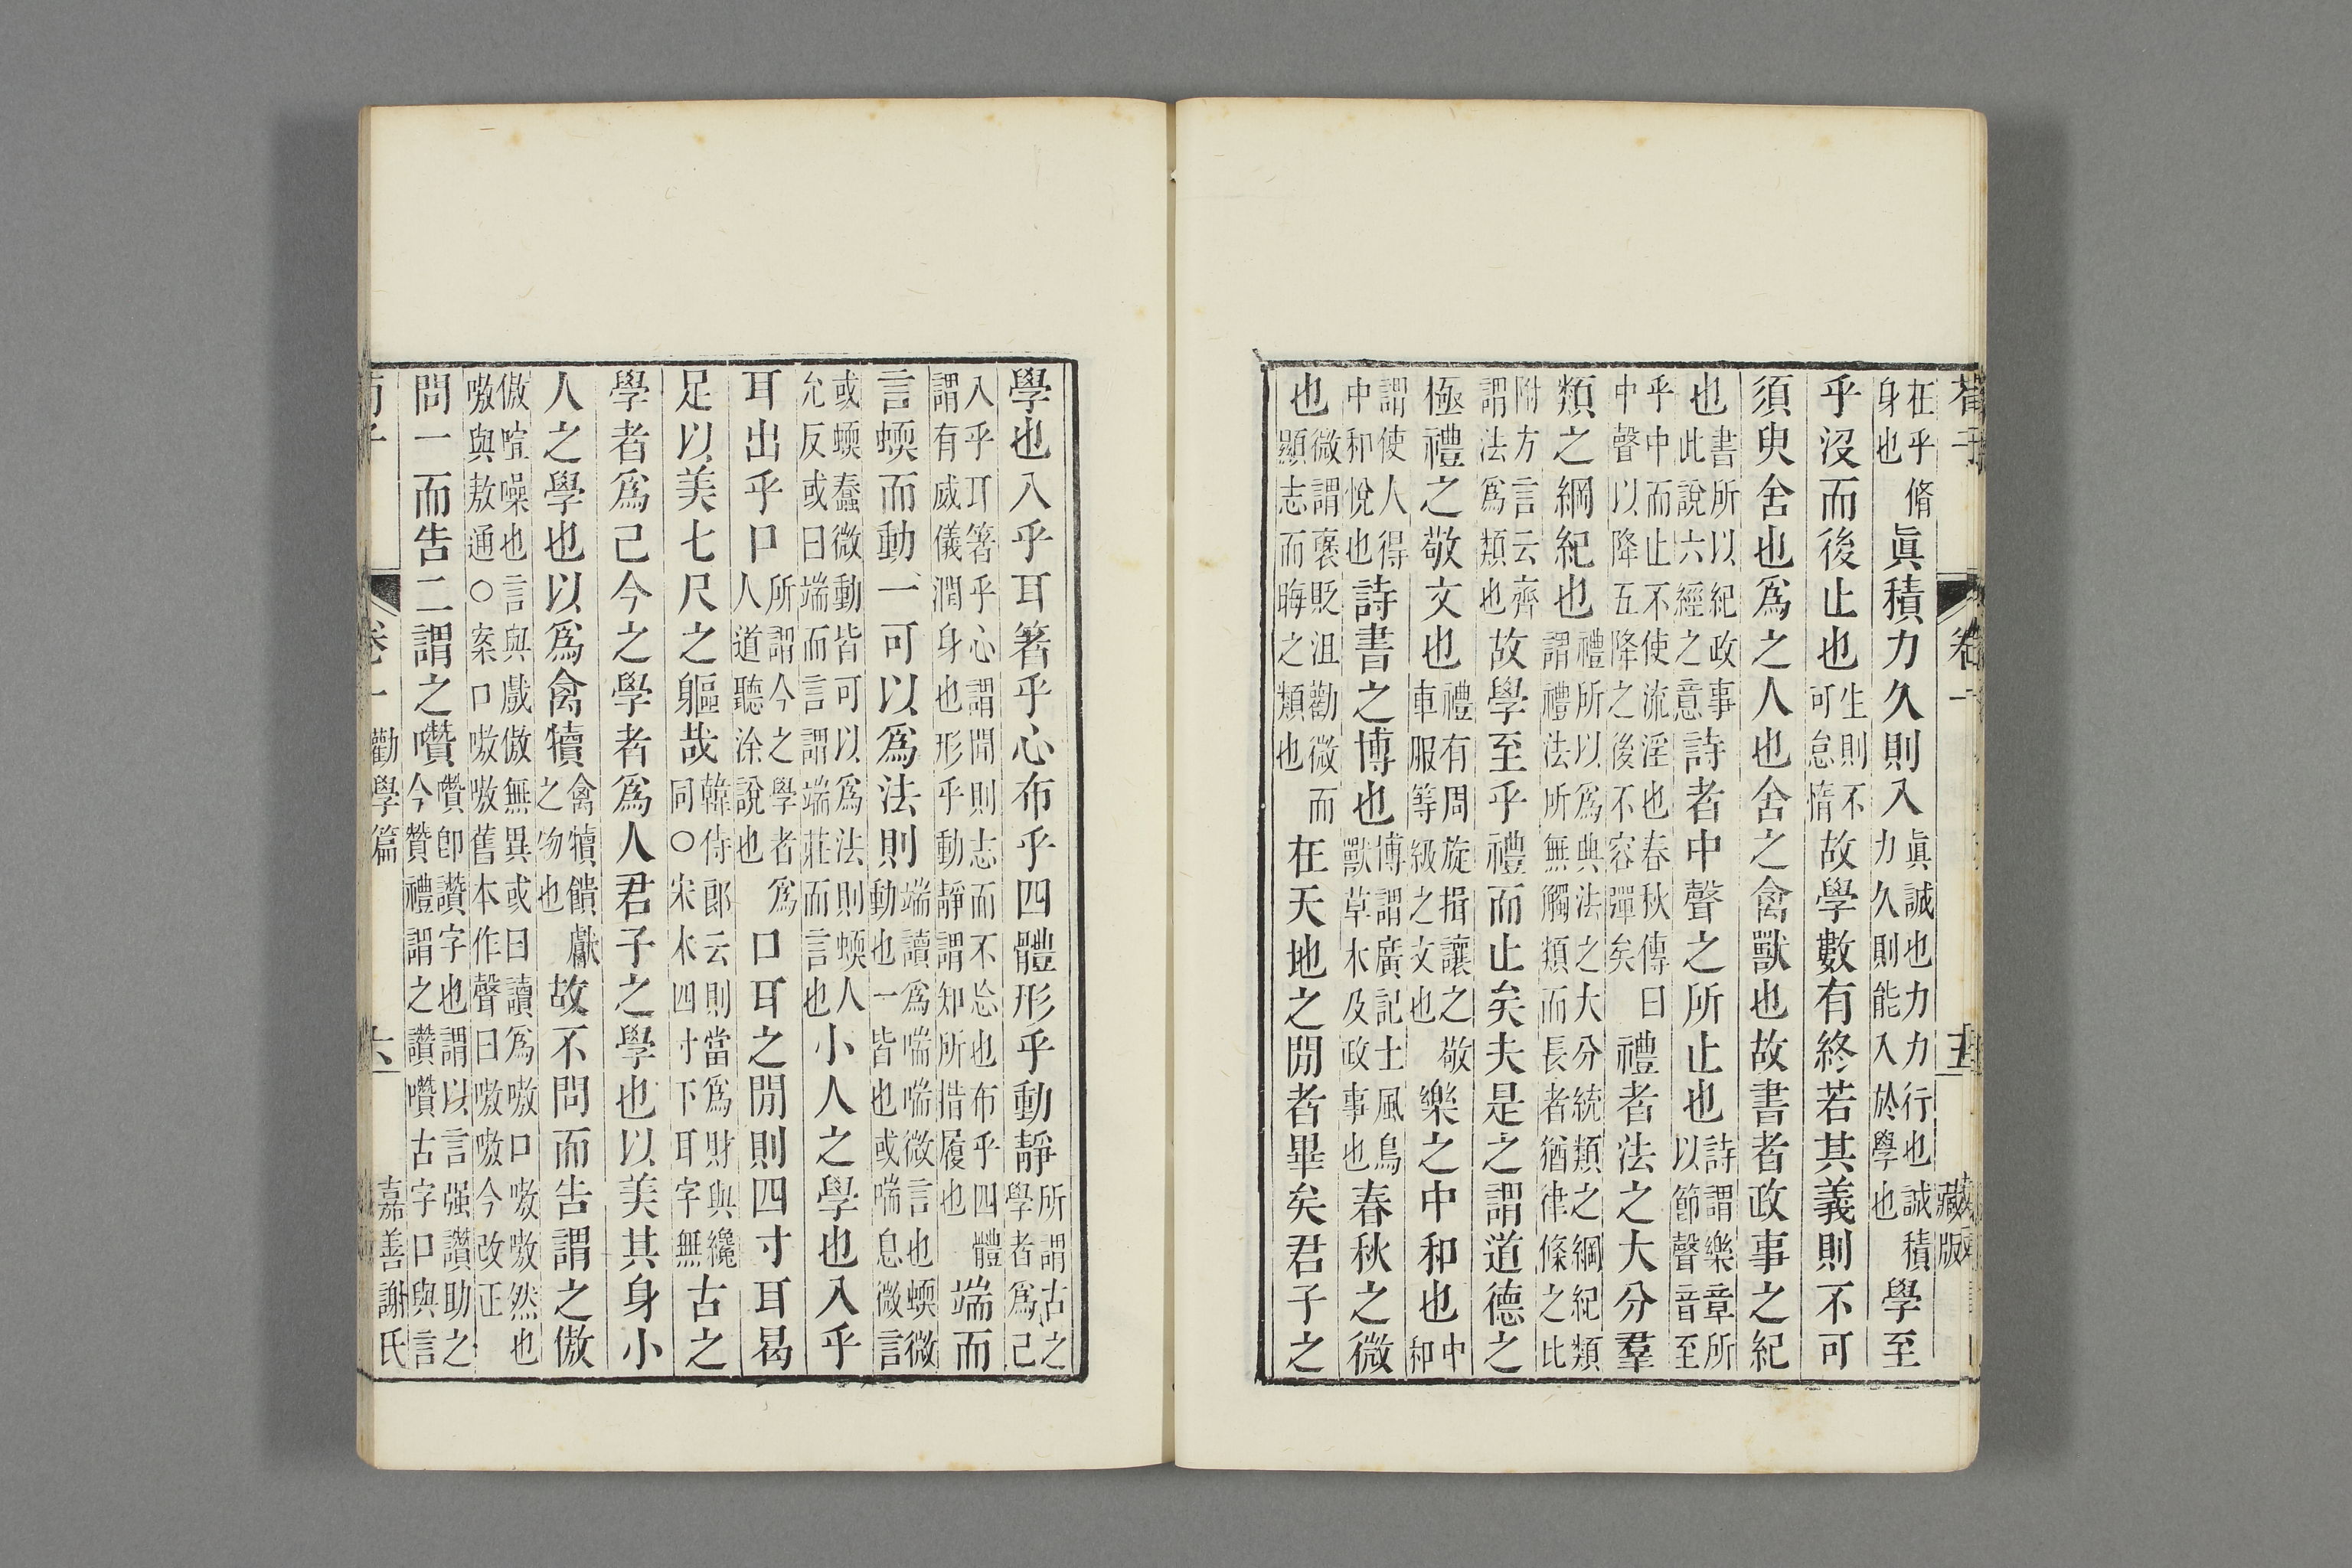 荀子
卷一
五
藏版
在乎脩身也眞積力久則入眞誠也力力行也誠積力久則能入於學也學至
乎沒而後止也生則不可怠惰故學數有終若其義則不可
須臾舍也爲之人也舍之禽獸也故書者政事之紀
也書所以紀政事此說六經之意詩者中聲之所止也詩謂樂章所以節聲音至
乎中而止不使流淫也春秋傳曰中聲以降五降之後不容彈矣禮者法之大分羣
類之綱紀也禮所以爲典法之大分統類之綱紀類謂禮法所無觸類而長者猶律條之比
附方言云齊謂法爲類也故學至乎禮而止矣夫是之謂道德之
極禮之敬文也禮有周旋揖讓之敬車服等級之文也樂之中和也中和
謂使人得中和悅也詩書之博也博謂廣記土風鳥獸草木及政事也春秋之微
也微謂褒貶沮勸微而顯志而晦之類也在天地之閒者畢矣君子之
學也入乎耳箸乎心布乎四體形乎動靜所謂古之學者爲己
入乎耳箸乎心謂聞則志而不忘也布乎四體謂有威儀潤身也形乎動靜謂知所措履也端而
言蝡而動一可以爲法則端讀爲喘喘微言也蝡微動也一皆也或喘息微言
或蝡蠢微動皆可以爲法則蝡人允反或曰端而言謂端莊而言也小人之學也入乎
耳出乎口所謂今之學者爲人道聽涂說也口耳之閒則四寸耳曷
足以美七尺之軀哉韓侍郎云則當爲財與纔同○宋本四寸下耳字無古之
學者爲己今之學者爲人君子之學也以美其身小
人之學也以爲禽犢禽犢饋獻之物也故不問而告謂之傲
傲喧噪也言與戲傲無異或曰讀爲嗷口嗷嗷然也嗷與敖通○案口嗷嗷舊本作聲曰嗷嗷今改正
問一而告二謂之囋囋卽讚字也謂以言强讚助之今贊禮謂之讚囋古字口與言
荀子
卷一
勸學篇
六
嘉善謝氏